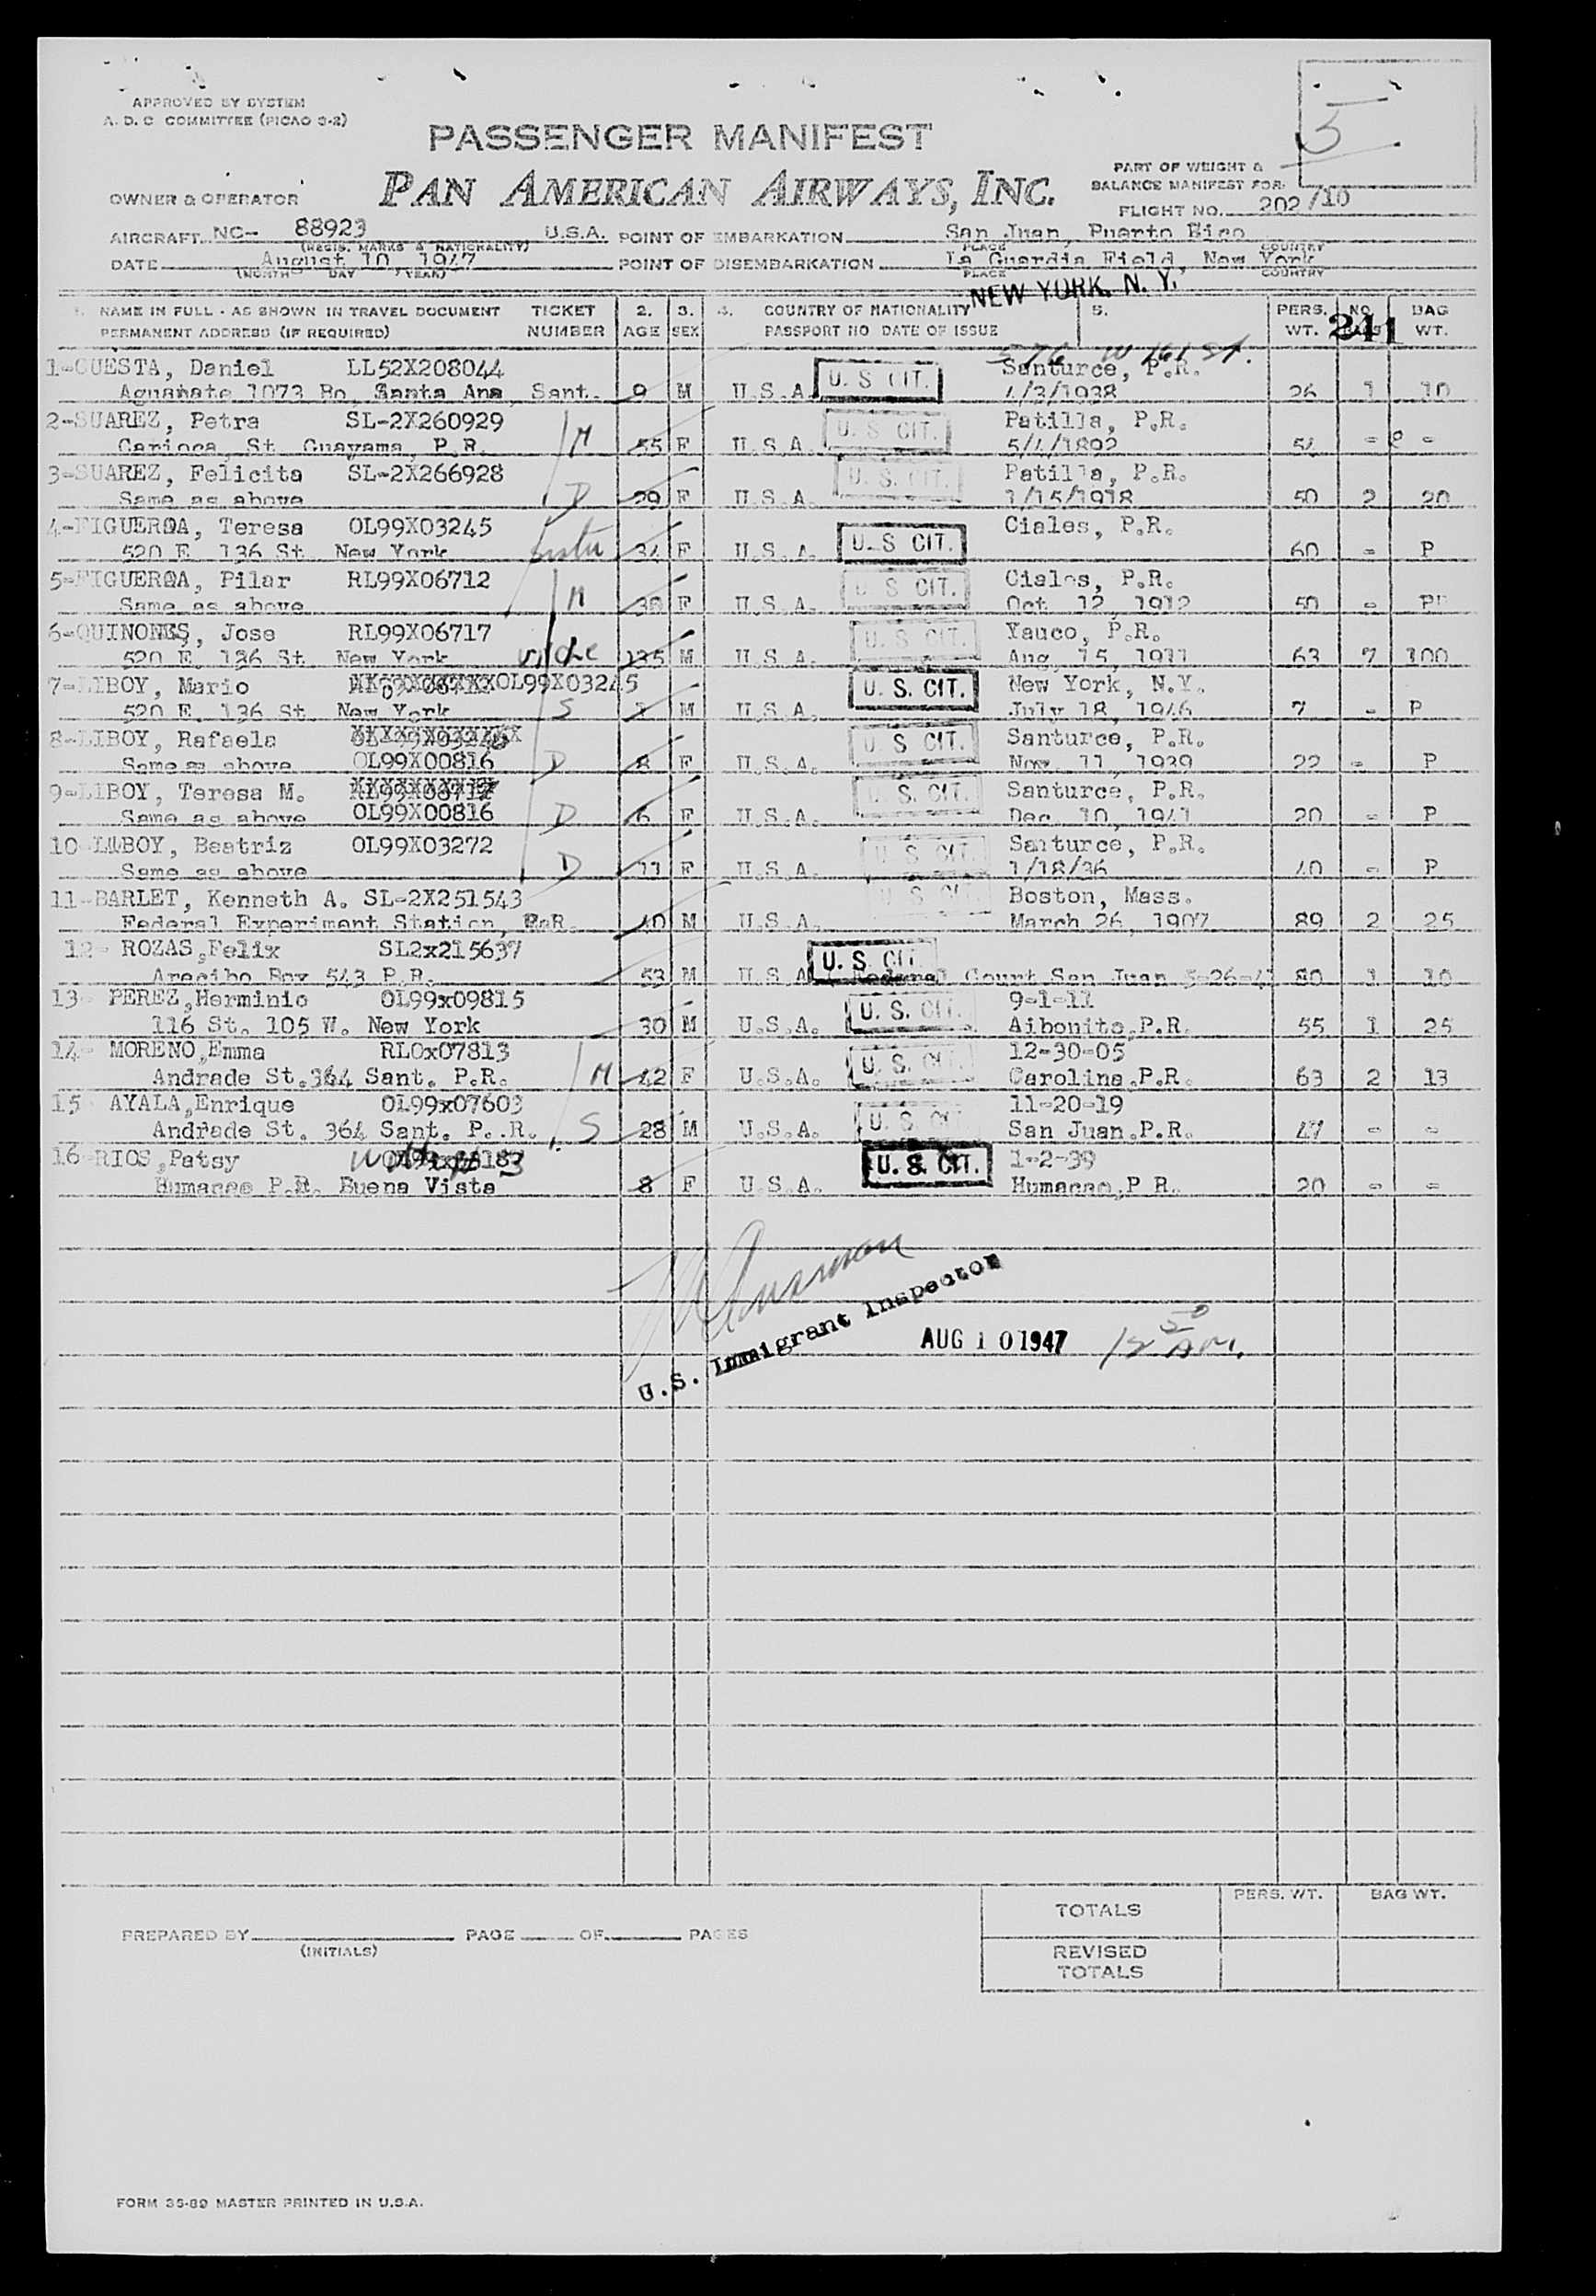 APPROVED BY SYSTEM
A. D. C COMMITTEE (PICAO 9-2)
5
PASSENGER MANIFEST
PAN AMERICAN AIRWAYS, INC.
PART OF WEIGHT &
BALANCE MANIFEST FOR
OWNER & OPERATOR
FLIGHT NO. 202/10
AIRCRAFT NC- 88923 U.S.A. POINT OF EMBARKATION San Juan, Puerto Rico
(REGIS. MARKS & NATIONALITY) PLACE COUNTRY
DATE August 10, 1947 POINT OF DISEMBARKATION La Guardia Field, New York
(MONTH DAY YEAR) PLACE COUNTRY
NEW YORK, N. Y.
1. NAME IN FULL - AS SHOWN IN TRAVEL DOCUMENT TICKET 2. 3. 4. COUNTRY OF NATIONALITY 5. PERS. NO. BAG
PERMANENT ADDRESS (IF REQUIRED) NUMBER AGE SEX PASSPORT NO DATE OF ISSUE WT. WT.
241
576 W 161 St.
1-CUESTA, Daniel LL52X208044 U. S CIT. Santurce, P.R.
Aguanate 1073 Bo. Santa Ana, Sant. 9 M U.S.A. 4/3/1938 26 1 10
2-SUAREZ, Petra SL-2X260929 U. S CIT. Patilla, P.R.
Carioca, St. Guayama, P.R. M 55 F U.S.A. 5/4/1892 54 - 0 -
3-SUAREZ, Felicita SL-2X266928 U. S. CIT. Patilla, P.R.
Same as above D 29 F U.S.A. 1/15/1918 50 2 20
4-FIGUEROA, Teresa OL99X03245 U. S CIT. Ciales, P.R.
520 E. 136 St. New York sister 34 F U.S.A. 60 - P
5-FIGUEROA, Pilar RL99X06712 U S CIT. Ciales, P.R.
Same as above M F U.S.A. Oct. 12, 1912 50 -
6-QUINONES, Jose RL99X06717 U. S CIT. Yauco, P.R.
520 E. 136 St. New York 35 M U.S.A. Aug. 15, 1911 63 7 100
7-LIBOY, Mario OL99X03245 U. S. CIT. New York, N.Y.
520 E. 136 St. New York S 1 M U.S.A. July 18, 1946 7 - P
8-LIBOY, Rafaela U. S CIT. Santurce, P.R.
Same as above OL99X00816 D 8 F U.S.A. Nov. 11, 1939 22 - P
9-LIBOY, Teresa M. U. S. CIT. Santurce, P.R.
Same as above OL99X00816 D 6 F U.S.A. Dec. 10, 1941 20 - P
10-LIBOY, Beatriz OL99X03272 U S CIT. Santurce, P.R.
Same as above D 11 F U.S.A. 1/18/36 40 - P
11-BARLET, Kenneth A. SL-2X251543 U S CIT. Boston, Mass.
Federal Experiment Station, P.R. 40 M U.S.A. March 26, 1907 89 2 25
12- ROZAS,Felix SL2x215637 U. S. CIT.
Arecibo Box 543 P.R. 53 M U.S.A. Federal Court San Juan 5-26-41 80 1 10
13- PEREZ,Herminio OL99x09815 U. S. CIT. 9-1-11
116 St. 105 W. New York 30 M U.S.A. Aibonito,P.R. 55 1 25
14- MORENO,Emma RL0x07813 U. S. CIT. 12-30-05
Andrade St.364 Sant. P.R. M 42 F U.S.A. Carolina,P.R. 63 2 13
15 AYALA,Enrique OL99x07603 U. S CIT 11-20-19
Andrade St. 364 Sant. P..R. S 28 M U.S.A. San Juan,P.R. 47 - -
16-RIOS,Patsy U. S. CIT. 1-2-39
Humacao P.R. Buena Vista 8 F U.S.A. Humacao,P.R. 20 - -
U.S. Immigrant Inspector
AUG 10 1947 12 50 AM.
PERS. WT. BAG WT.
TOTALS
PREPARED BY PAGE OF PAGES
(INITIALS)
REVISED
TOTALS
FORM 35-89 MASTER PRINTED IN U.S.A.